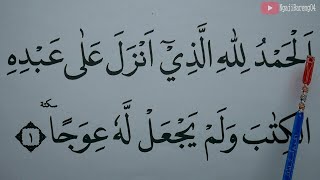 NgajiBareng04
اَلْحَمْدُ لِلّٰهِ الَّذِيْٓ اَنْزَلَ عَلٰى عَبْدِهِ
الْكِتٰبَ وَلَمْ يَجْعَلْ لَّهٗ عِوَجًا ۜ ١
سكتة